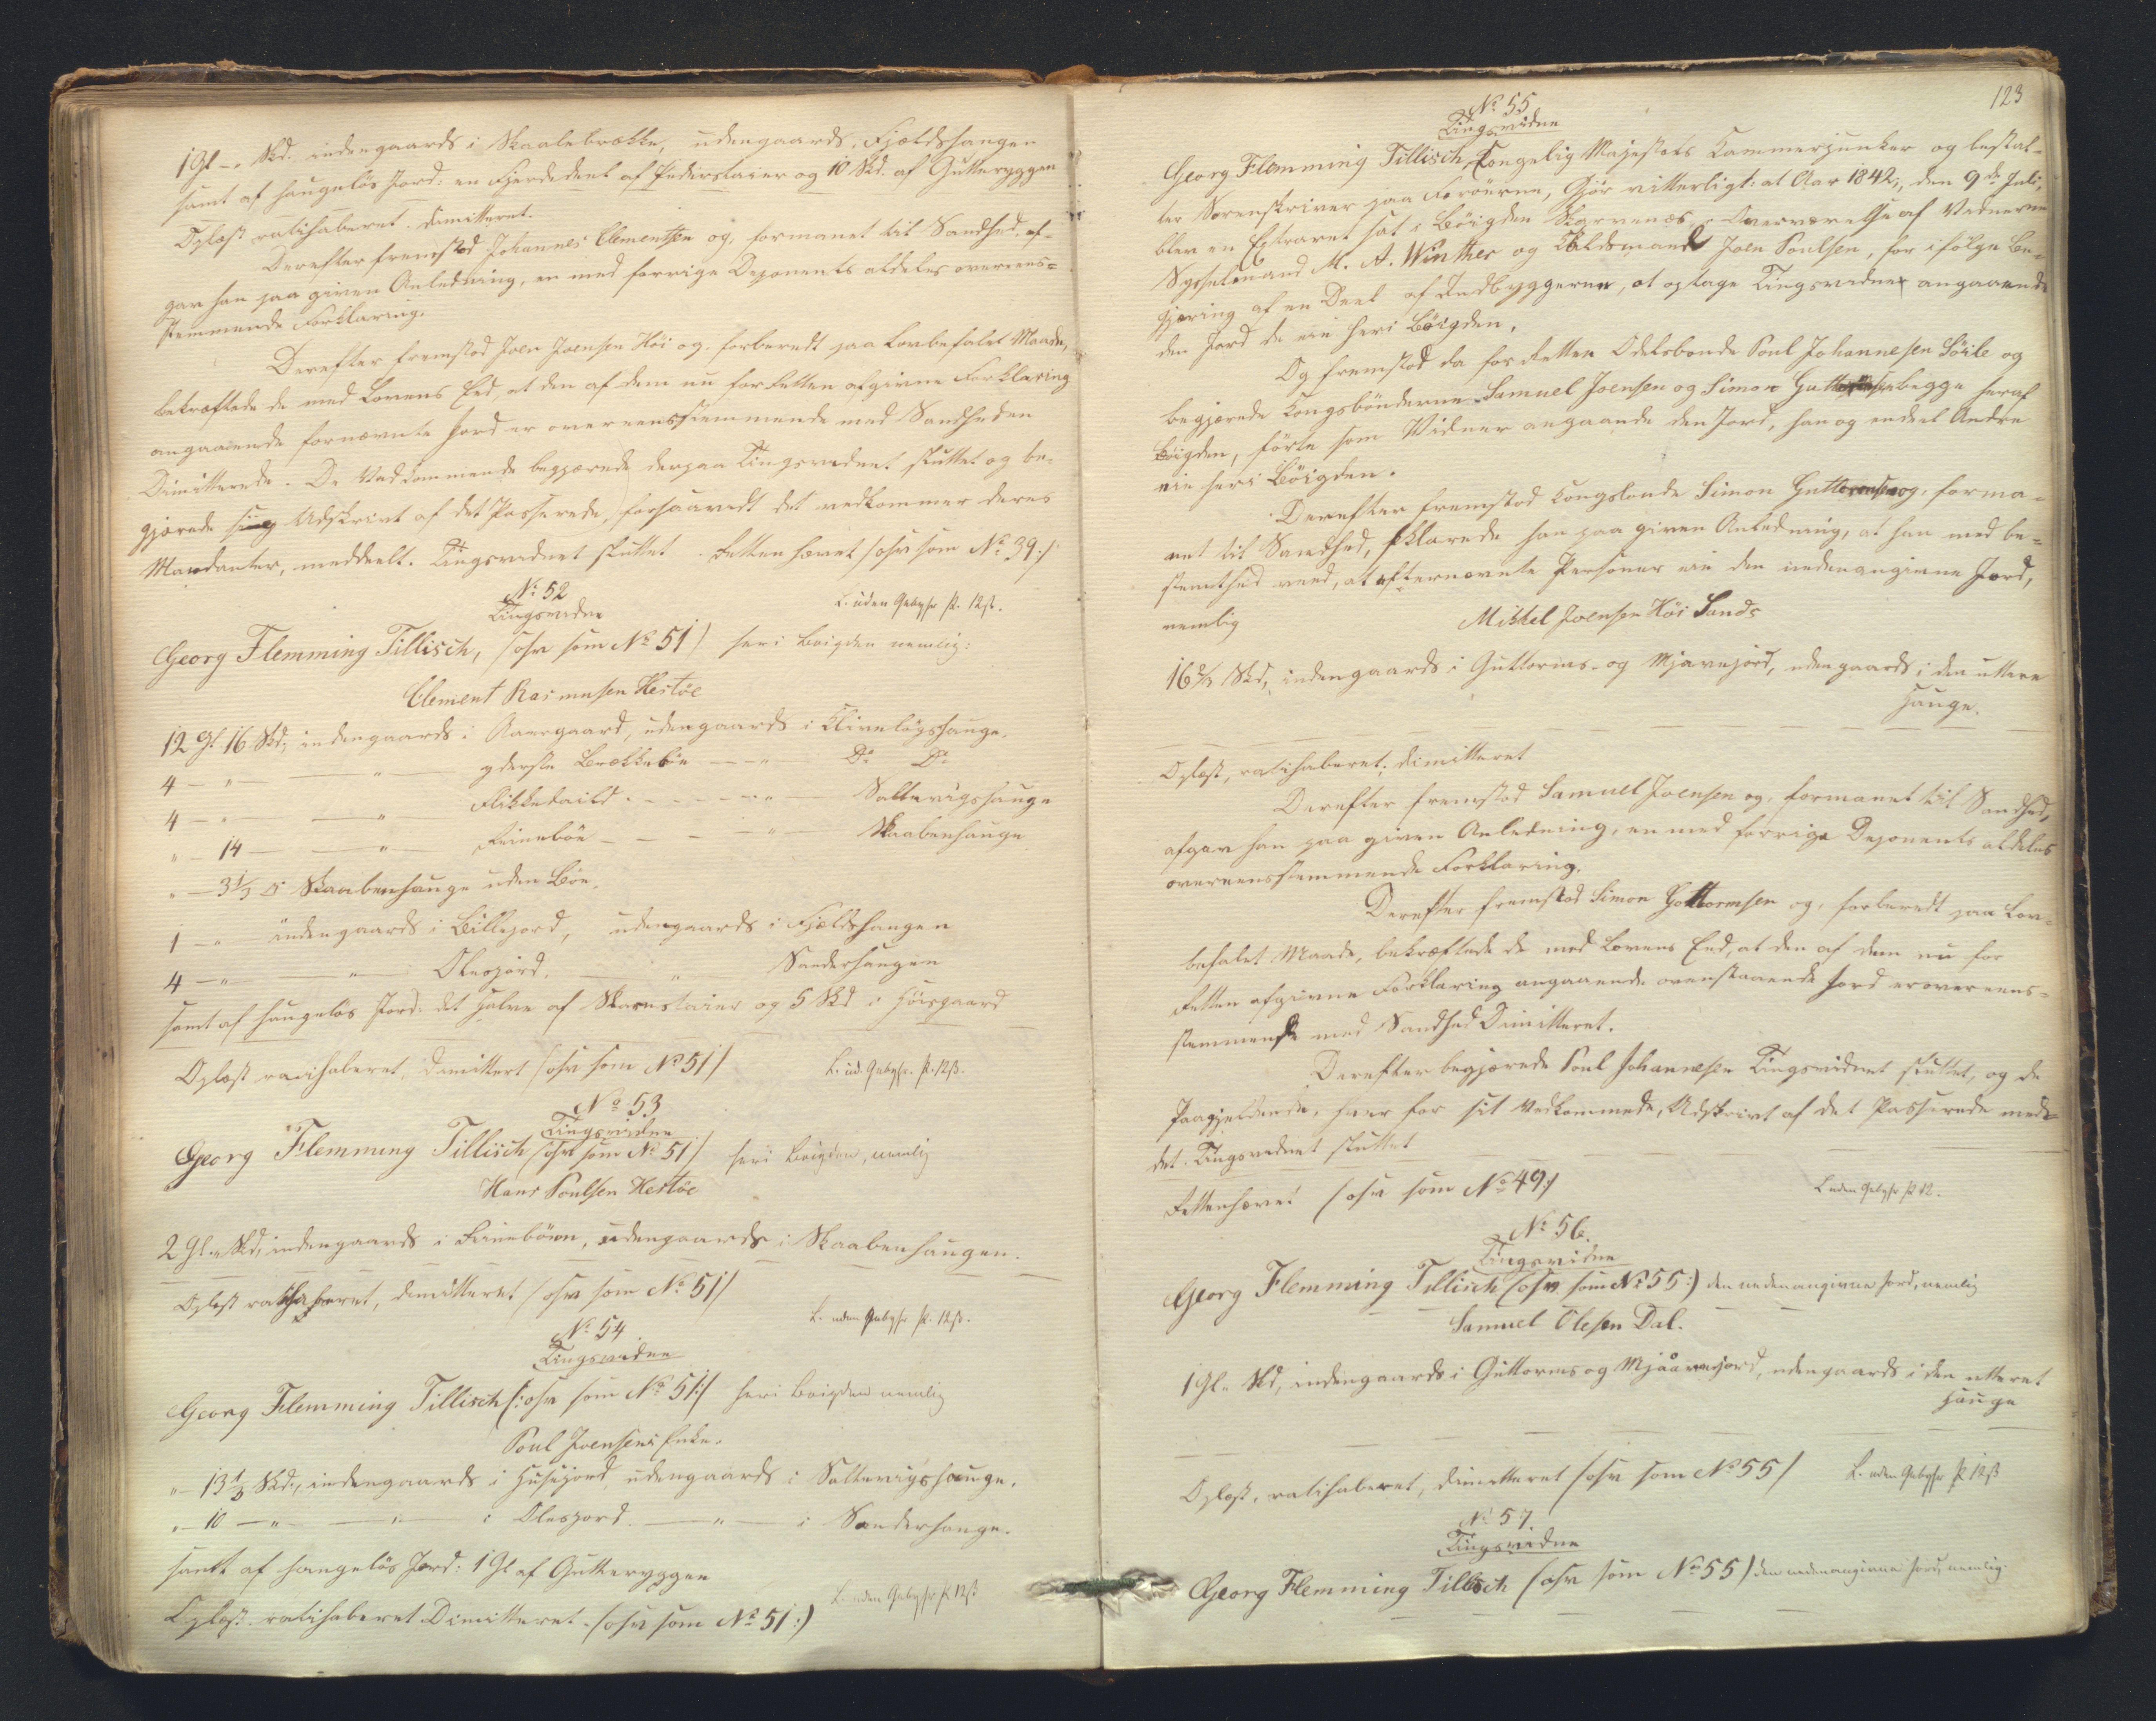 1 Gl - " Skd. indengaards i Skaalebrække, udengaards, Fjeldshaugen
samt af haugelös Jord: en Fjerdedeel af Pederstaier og 10 Skd. af Gutteryggen
Oplæst ratihaberet. dimitteret.
Derefter fremstod Johannes Clementsen og, formanet til Sandhed, af-
gav han paa given Anledning, en med forrige Deponents aldeles overeens-
stemmende Forklaring.
Derefter fremstod Joen Joensen Höi og, forberedt paa lovbefalet Maade,
bekræftede de med Lovens Eed, at den af dem nu for Retten afgivne Forklaring
angaaende fornævnte Jord er overeensstemmende med Sandheden
Dimitterede. De Vedkommende begjærede derpaa Tingsvidnet sluttet og be-
gjærede sig Udskrivt af det Passerede, forsaavidt det vedkommer deres
Mandanter, meddeelt. Tingsvidnet sluttet. Retten hævet /osv som No 39:/
No 52
Tingsvidne
L. uden Gebyhr st. 12 ß.
Georg Flemming Tillisch, /osv som No 51/ heri Bøigden nemlig:
Clement Rasmusen Hestöe
12 Gl 16 Skd, indengaards i Aaregaard, udengaards i Kliveløgshauge.
4 - " - " - yderste Brekkeböe - " - Do Do
4 - " - " - Flikkedaild - " - Saltevigshauge
" - 14 - " - Reinebøe - " - Skaabenhauge
" - 3 1/3 i Skaabenhauge uden Böe.
1 - " indengaards i Billejord, udengaards i Fjeldshaugen
4 - " - " - Olesjord. - " - Sanderhaugen
samt af haugelös Jord: det halve af Skarvstaier og 5 Skd i Höisgaard
Oplæst ratihaberet, dimittert /osv som No 51/
L. ud. Gebyhr. st. 12 ß.
No 53
Tingsvidne
Georg Flemming Tillisch /osv som No 51/ heri Bøigden, nemlig
Hans Poulsen Hestöe
2 Gl " Skd, indengaards i Reinebøen, udengaards i Skaabenhaugen.
Oplæst ratihaberet, dimitteret /osv som No 51/
L. uden Gebyhr st. 12 ß.
No 54
Tingsvidne
Georg Flemming Tillisch /:osv som No 51:/ heri Bøigden nemlig
Poul Joensens Enke.
" - 13 1/3 Skd., indengaards i Husejord, udengaards i Saltevigshauge.
" - 10 - " - " - i Olesjord. - " - i Sanderhauge.
samt af haugelös Jord: 1 Gl af Gutteryggen
Oplæst ratihaberet Dimitteret. /osv som No 51:)
L. uden Gebyhr st 12 ß
123
No 55
Tingsvidne
Georg Flemming Tillisch, Kongelig Majestæts Kammerjunker og bestal-
ter Sorenskriver paa Færöerne, Gjör vitterligt: at Aar 1842, den 9de Juli,
blev en Extraret sat i Böigden Skarvenæs, i Overværelse af Vidnerne
Sysselmand M. A. Winther og Kaldsmand Joen Poulsen, for ifölge Be-
gjæring af en Deel af Indbyggerne, at optage Tingsvidner angaaende
den Jord de eie heri Böigden.
Og fremstod da for Retten Odelsbonde Poul Johannesen Böile og
begjærede Kongsbönderne Samuel Joensen og Simon Guttormsen begge heraf
Böigden, förte som Vidner angaaende den Jord, han og endeel Andre
eie heri Böigden.
Derefter fremstod Kongsbonde Simon Guttormsen og, forma-
net til Sandhed, forklarede han paa given Anledning, at han med be-
stemthed veed, at efternævnte Personer eie den nedenangivne Jord,
nemlig
Mikkel Joensen Höi Sands
16 2/3 Skd, indengaards i Guttorms- og Mjavejord, udengaards i den uttere
Hauge.
Oplæst, ratihaberet; dimitteret
Derefter fremstod Samuel Joensen og, formanet til Sandhed,
afgav han paa given Anledning, en med forrige Deponents aldeles
overeensstemmende Forklaring.
Derefter fremstod Simon Guttormsen og, forberedt paa lov-
befalet Maade, bekræftede de med Lovens Eed, at den af dem nu for
Retten afgivne Forklaring angaaende ovenstaaende Jord er overeens-
stemmende med Sandhed Dimitteret.
Derefter begjærede Poul Johannesen Tingsvidnet sluttet, og de
Paagjeldende, hver for sit Vedkommende, Udskrivt af det Passerede med-
det. Tingsvidnet sluttet
Retten hævet /osv som No 49:/
L uden Gebyhr st 12.
No 56.
Tingsvidne
Georg Flemming Tillisch /osv som No 55:) den nedenangivne Jord, nemlig
Samuel Olesen Dal.
1 Gl " Skd, indengaards i Guttorms og Mjaavejord, udengaards i den utteret
Hauge
Oplæst, ratihaberet, dimitteret /osv som No 55/
L. uden Gebyhr st 12 ß
No 57.
Tingsvidne
Georg Flemming Tillisch /osv som No 55/ den nedenangivne Jord, nemlig